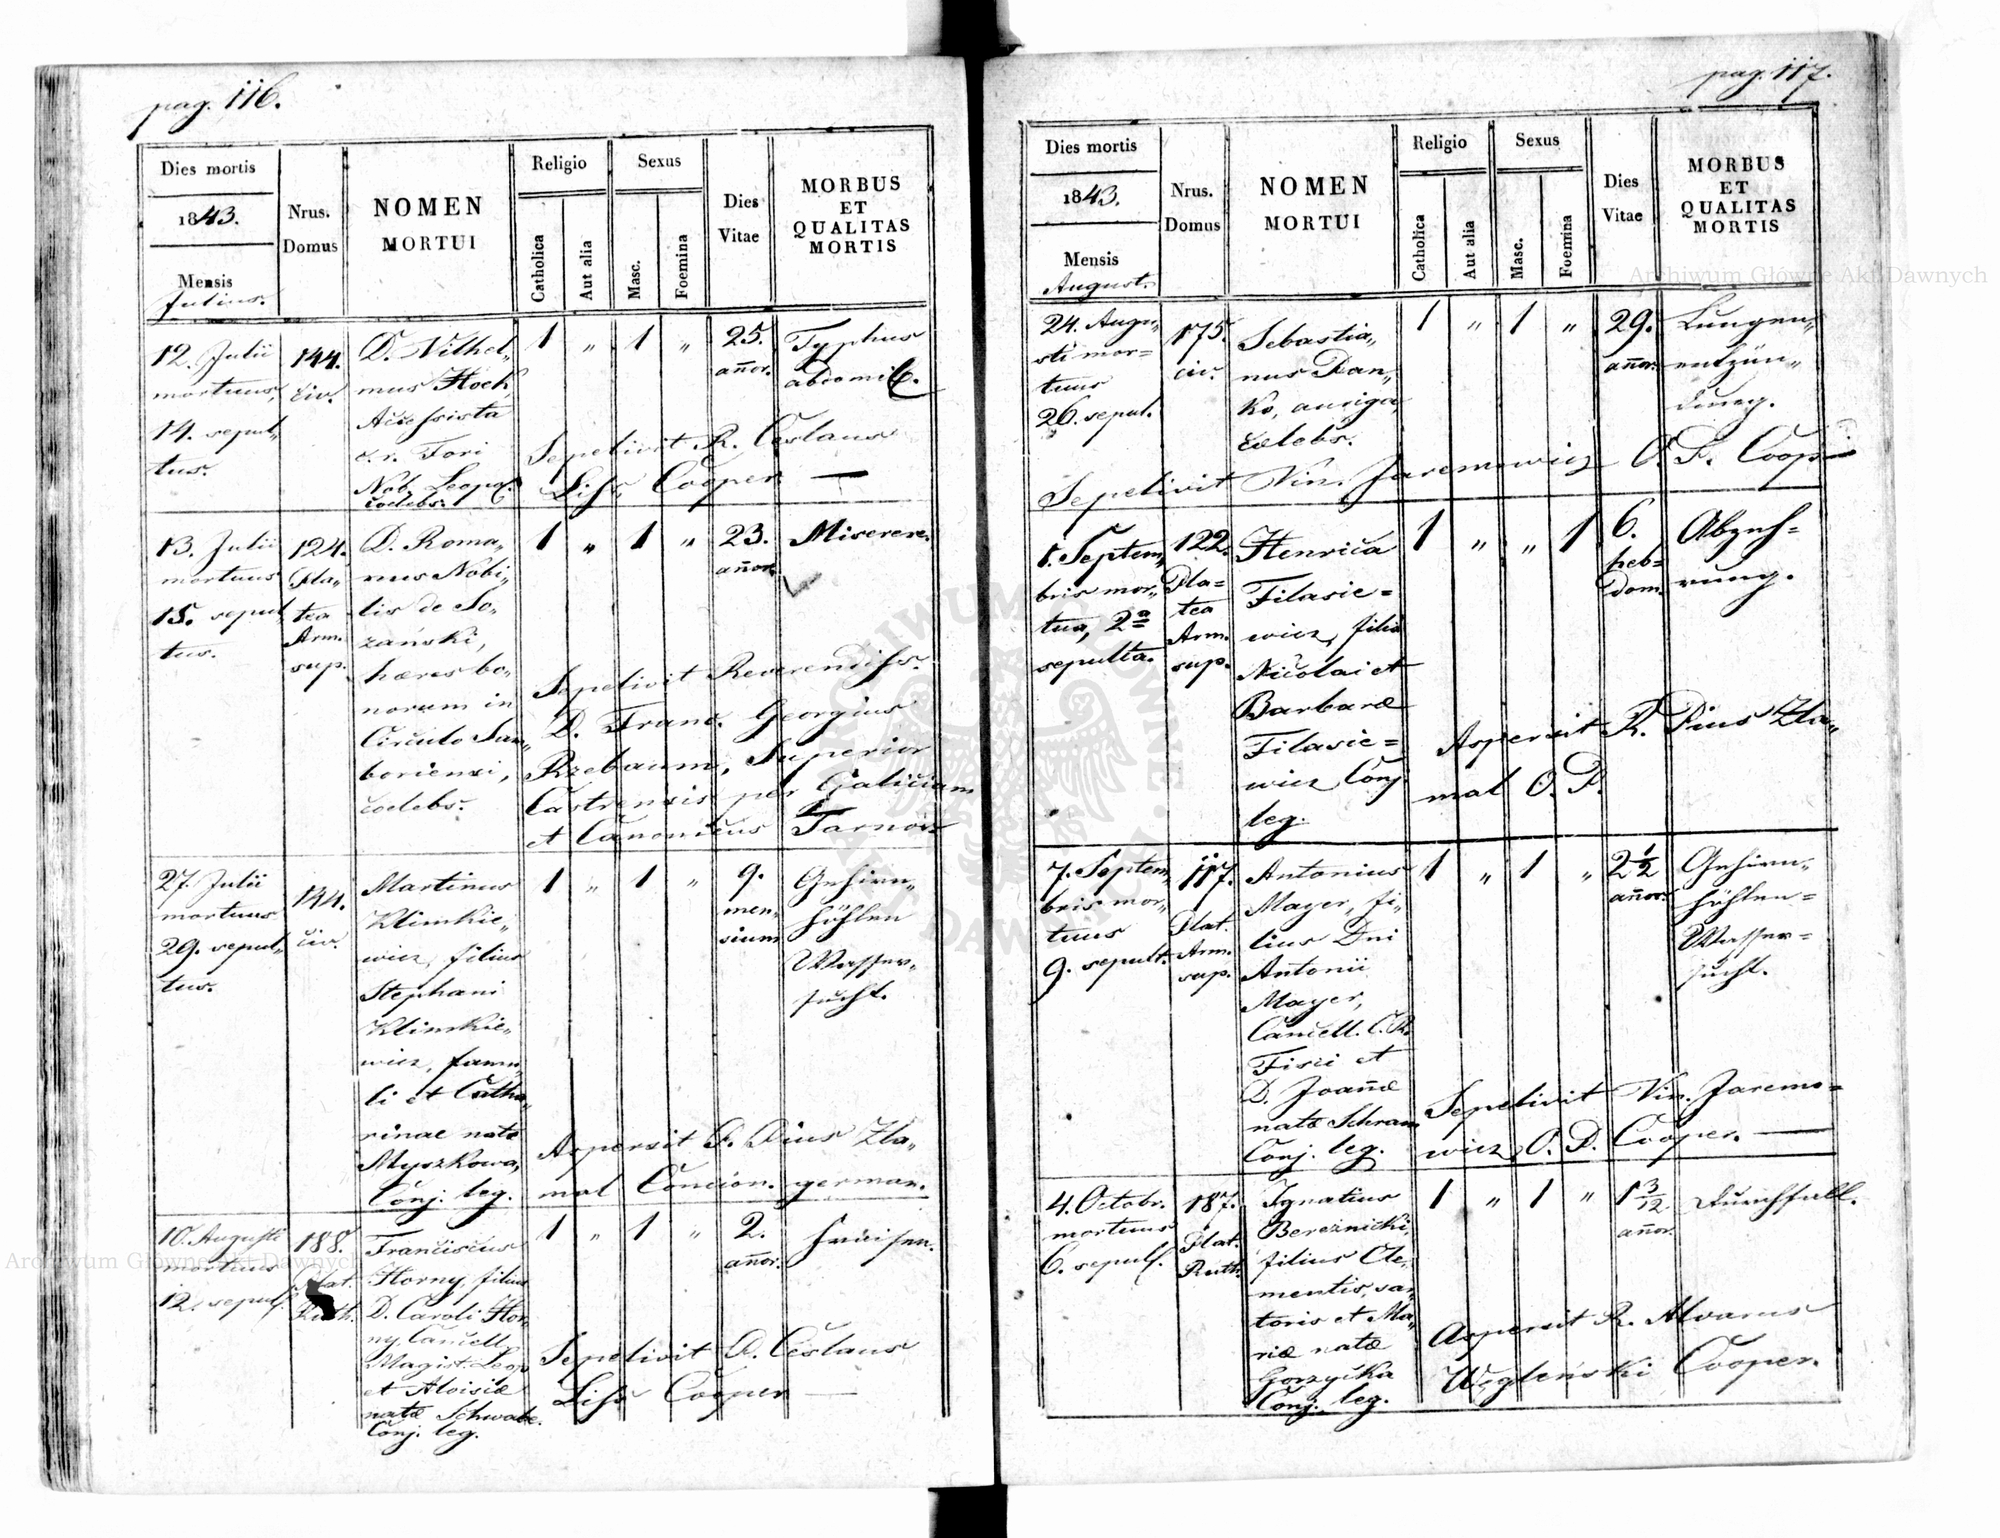 pag. 116.
Dies mortis
1843.
Mensis
Julius.
Nrus.
Domus
NOMEN
MORTUI
Religio
Catholica
Aut alia
Sexus
Masc.
Foemina
Dies
Vitae
MORBUS
ET
QUALITAS
MORTIS
12. Julii
mortuus,
14. sepul„
tus.
144.
civ.
D. Wilhel„
mus Hoch,
Accessista
c. r. Fori
Nob. Leopol.
coelebs.
1 „ 1 „
25.
añor.
Typhus
abdominal.
Sepelivit R. Ceslaus
Liss Cooper —
13. Julii
mortuus
15. sepul
tus.
124.
Pla„
tea
Arm.
sup.
D. Roma„
nus Nobi„
lis de So„
zański,
hæres bo„
norum in
Circulo Sam„
boriensi,
coelebs.
1 „ 1 „
23.
añor.
Miserere.
Sepelivit Reverendiss.
D. Franc. Georgius
Rzebaum, Superior
Castrensis per Galiciam
et Canonicus Tarnov.
27. Julii
mortuus
29. sepul„
tus.
144.
civ.
Martinus
Klimkie„
wicz, filius
Stephani
Klimkie„
wicz, famu„
li et Catha„
rinae natæ
Myszkowa,
Conj. leg.
1 „ 1 „
9.
men„
sium
Gehirn„
höhlen
Wasser„
sucht.
Aspersit P. Pius Zla„
mal Concion. german.
10. Augusti
mortuus
12. sepul.
188.
Plat.
Ruth.
Franciscus
Horny, filius
D. Caroli Hor„
ny, Cancell.
Magist. Leop.
et Aloisiæ
natæ Schwabe.
Conj. leg.
1 „ 1 „
2.
añor.
Fraisen.
Sepelivit P. Ceslaus
Liss Cooper —
pag. 117.
Dies mortis
1843.
Mensis
August.
Nrus.
Domus
NOMEN
MORTUI
Religio
Catholica
Aut alia
Sexus
Masc.
Foemina
Dies
Vitae
MORBUS
ET
QUALITAS
MORTIS
24. Augu„
sti mor=
tuus
26. sepul.
175.
civ.
Sebastia„
nus Dan„
ko, auriga,
cœlebs.
1 „ 1 „
29.
añor.
Lungen„
entzün„
dung.
Sepelivit Vin. Jaremowicz O. P. Coop
1. Septem„
bris mor„
tua, 2ª
sepulta.
122.
Pla=
tea
Arm.
sup.
Henrica
Filasie=
wicz, filia
Nicolai et
Barbaræ
Filasie=
wicz Conj
leg.
1 „ „ 1
6.
heb=
dom.
Abzeh=
rung.
Aspersit R. Pius Zla„
mal O. P.
7. Septem„
bris mor„
tuus
9. sepult.
117.
Plat.
Arm.
sup.
Antonius
Mayer, fi„
lius Dni
Antonii
Mayer,
Cancell. C. R.
Fisci et
D. Joañæ
natæ Schram
Conj. leg.
1 „ 1 „
2½
añor.
Gehirn„
höhlen=
Wasser=
sucht.
Sepelivit Vin. Jaremo=
wicz, O. P. Cooper. —
4. Octobr.
mortuus
6. sepul.
187.
Plat.
Ruth.
Ignatius
Bereznicki,
filius Cle„
mentis, sar
toris et Ma„
riæ natæ
Gorzycka
Conj. leg.
1 „ 1 „
1 3/12.
añor.
Durchfall.
Aspersit R. Alvarus
Węgleński Cooper.
Archiwum Główne Akt Dawnych
Archiwum Główne Akt Dawnych